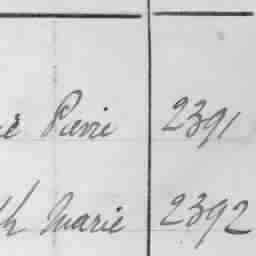 Pierre 2391
Marie 2392